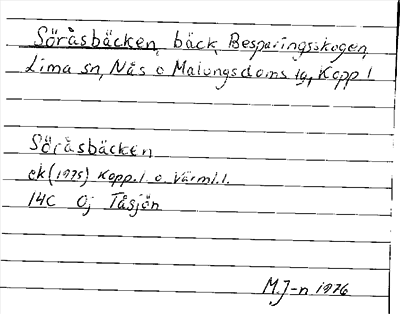 Söråsbäcken, bäck, Besparingsskogen,
Lima sn, Nås o Malungs doms lg, Kopp l
Söråsbäcken
ek (1975) Kopp. l o. Värml. l.
14C Oj Tåsjön
M.J-n 1976